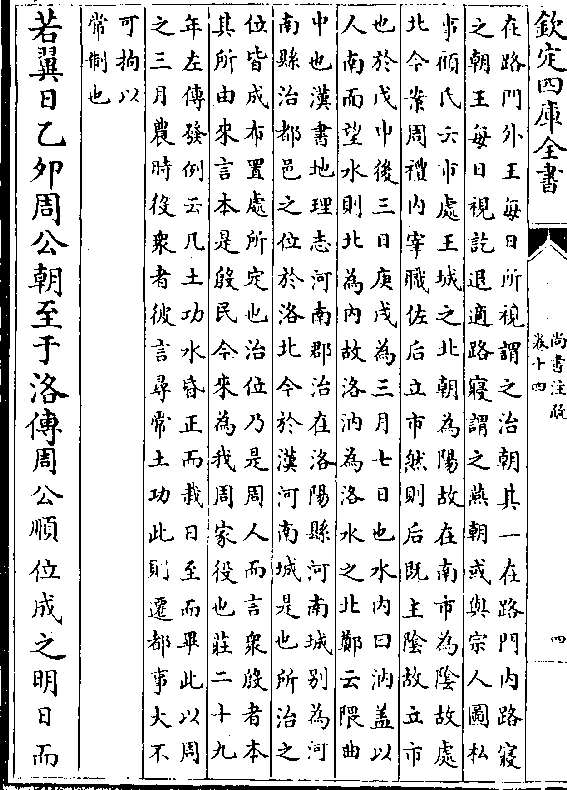 欽定四庫全書
尚書注疏
卷十四
四
在路門外王每日所視謂之治朝其一在路門内路寢
之朝王每日視訖退適路寢謂之燕朝或與宗人圖私
事顧氏云市處王城之北朝為陽故在南市為陰故處
北今案周禮内宰職佐后立市然則后既主陰故立市
也於戊申後三日庚戌為三月七日也水内曰汭蓋以
人南而望水則北為内故洛汭為洛水之北鄭云隈曲
中也漢書地理志河南郡治在洛陽縣河南城别為河
南縣治都邑之位於洛北今於漢河南城是也所治之
位皆成布置處所定也治位乃是周人而言衆殷者本
其所由來言本是殷民今來為我周家役也莊二十九
年左傳發例云凡土功水昏正而栽日至而畢此以周
之三月農時役衆者彼言尋常土功此則遷都事大不
可拘以
常制也
若翼日乙卯周公朝至于洛傳周公順位成之明日而